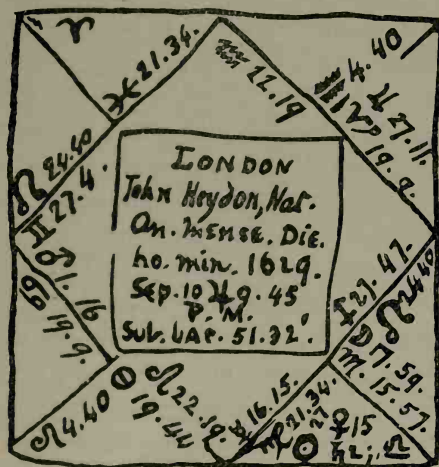 ♈
♓ 21.34.
♒ 22.19
♒ 4.40
27.11.
♑ 19.9.
♌ 24.40
♊ 27.4.
♂ 1.16
♋ 19.9.
LONDON
John Heydon, Nat.
An. Mense. Die.
ho. min. 1629.
Sep. 10 ♃ 9.45
P. M.
Sub. Lat. 51.32'.
27.47.
24.40
☽ 17.59.
♏ 15.57.
♌ 4.40
♌ 22.19.
19.44
16.15.
21.34.
☉ 27
♀ 15
♄ 2; ♎